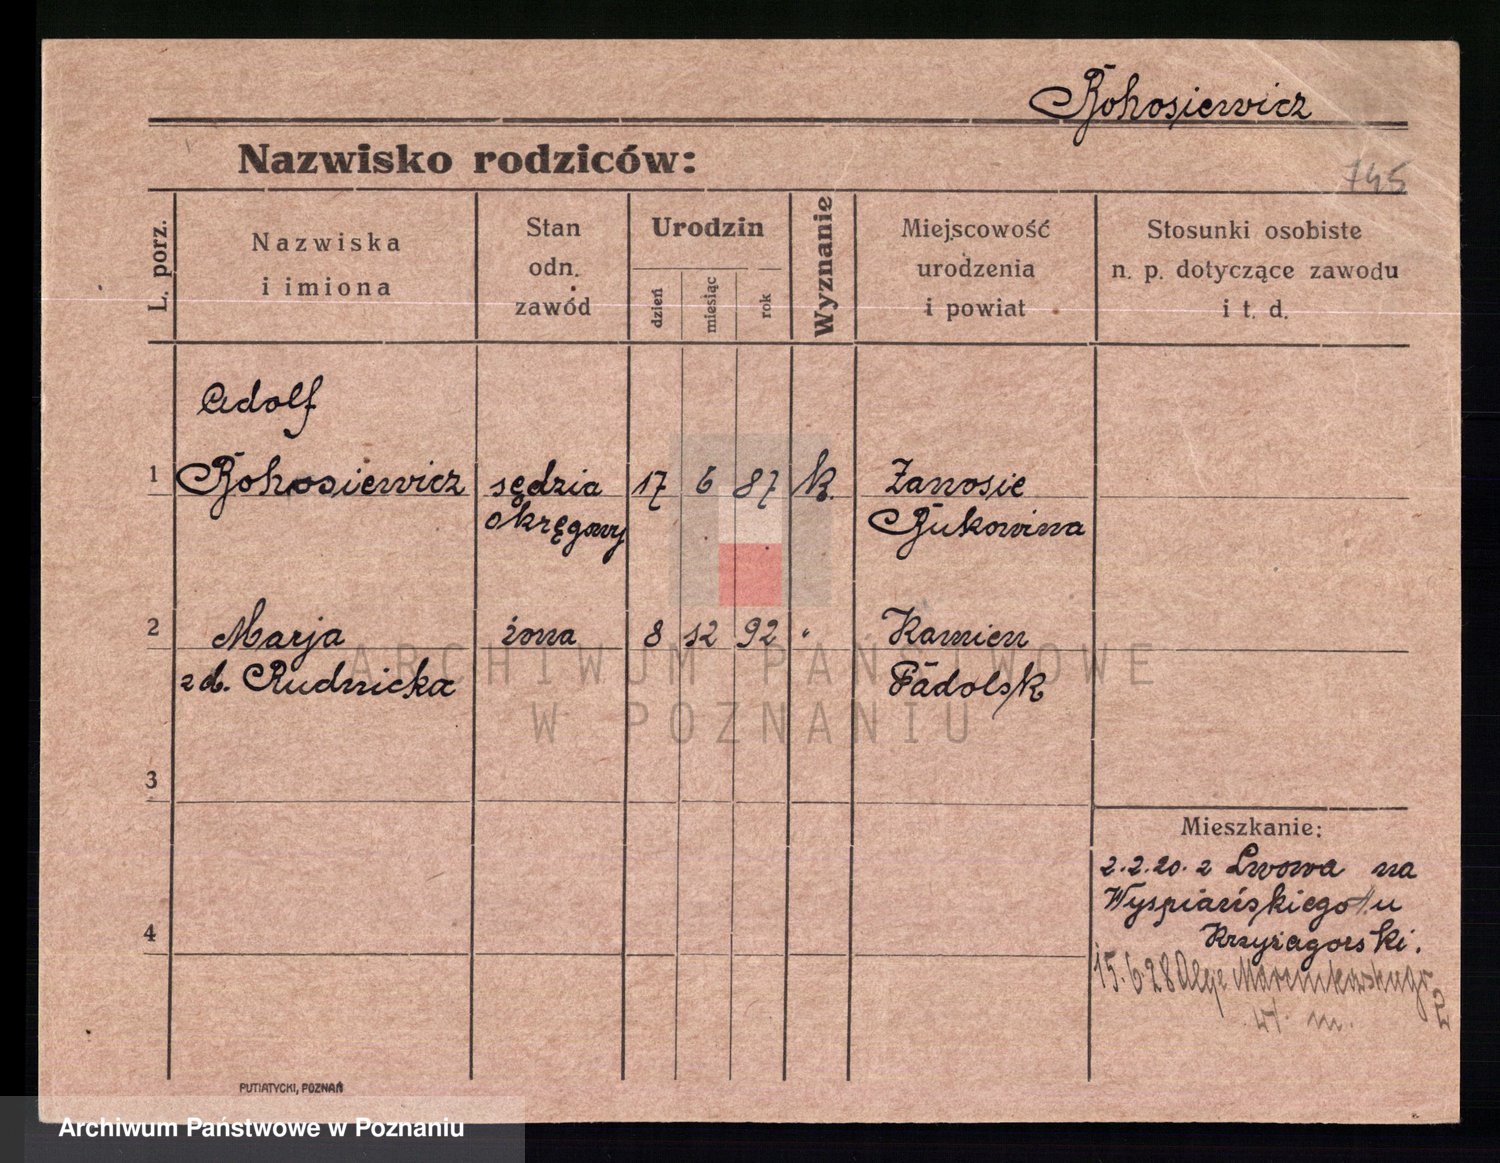 Bohosiewicz
Nazwisko rodziców:
745
L. porz.
Nazwiska
i imiona
Stan
odn.
zawód
Urodzin
dzień
miesiąc
rok
Wyznanie
Miejscowość
urodzenia
i powiat
Stosunki osobiste
n. p. dotyczące zawodu
i t. d.
Adolf
1 Bohosiewicz sędzia 17 6 87 k. Zanosie
okręgowy Bukowina
2 Marja żona 8 12 92 " Kamien
zd. Rudnicka Padolsk
ARCHIWUM PAŃSTWOWE
W POZNANIU
3
Mieszkanie:
2.2.20. z Lwowa na
Wyspiańskiego u
4
Krzyżagorski.
15.6.28 Aleje Marcinkowskiego
m.
PUTIATYCKI, POZNAŃ
Archiwum Państwowe w Poznaniu